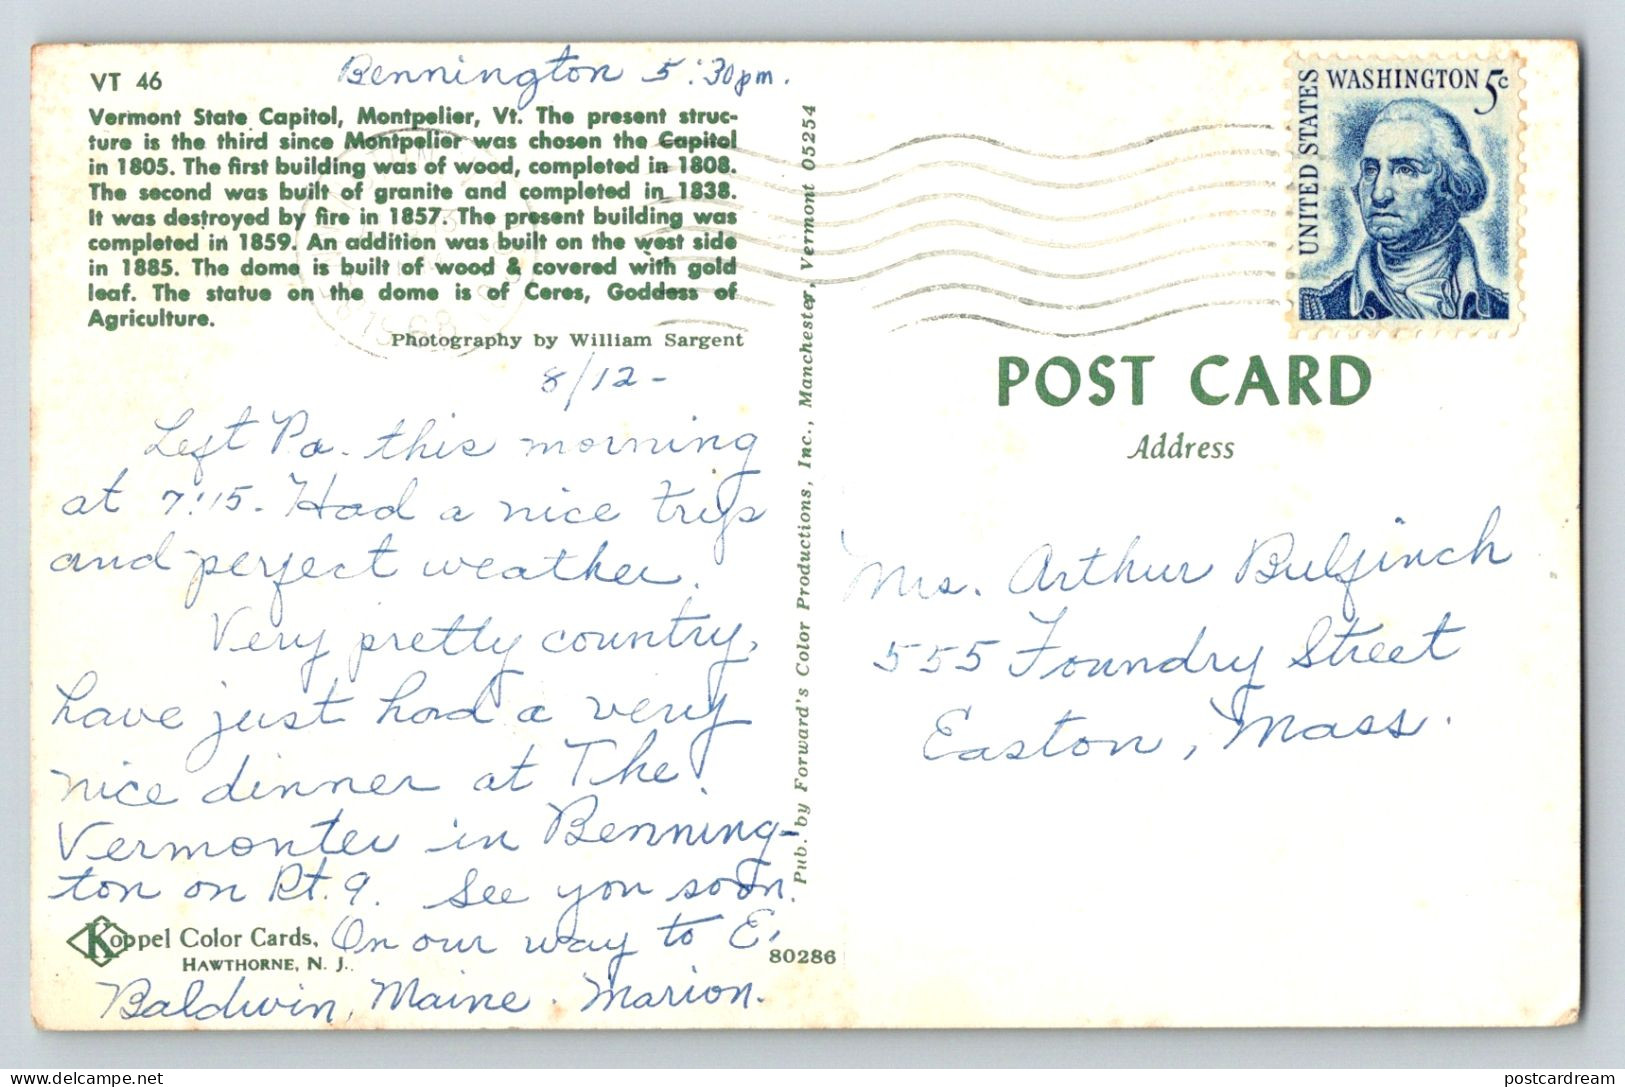 Bennington 5:30pm.
VT 46
Vermont State Capitol, Montpelier, Vt. The present struc-
ture is the third since Montpelier was chosen the Capitol
in 1805. The first building was of wood, completed in 1808.
The second was built of granite and completed in 1838.
It was destroyed by fire in 1857. The present building was
completed in 1859. An addition was built on the west side
in 1885. The dome is built of wood & covered with gold
leaf. The statue on the dome is of Ceres, Goddess of
Agriculture.
Photography by William Sargent
8/12-
Left Pa. this morning
at 7:15. Had a nice trip
and perfect weather.
Very pretty country,
have just had a very
nice dinner at The
Vermonter in Benning-
ton on Rt. 9. See you soon.
On our way to E.
Baldwin, Maine. Marion.
Koppel Color Cards,
HAWTHORNE, N. J.
80286
Pub. by Forward's Color Productions, Inc., Manchester, Vermont 05254
1968
UNITED STATES
WASHINGTON 5c
POST CARD
Address
Mrs. Arthur Bulfinch
555 Foundry Street
Easton, Mass.
delcampe.net
postcardream